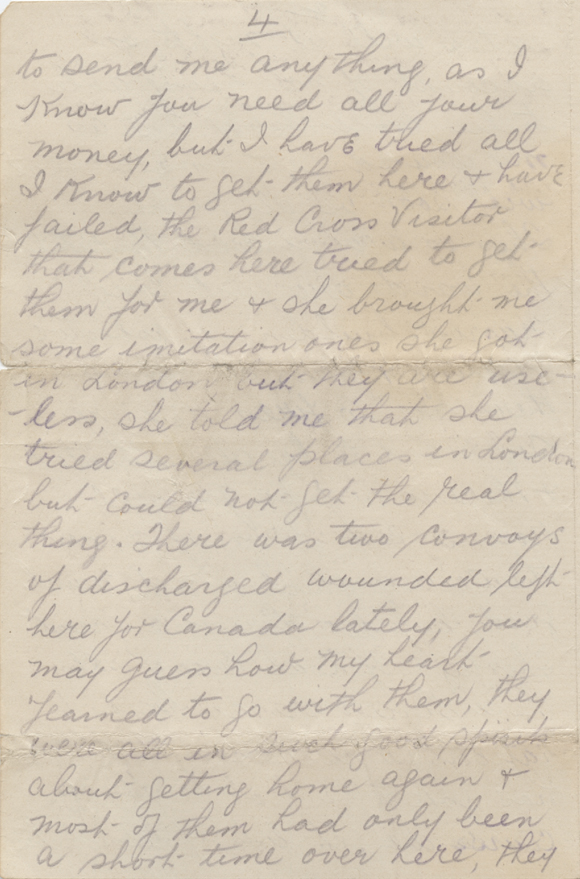 4
to send me anything, as I
Know you need all your
money, but I have tried all
I Know to get them here + have
failed, the Red Cross Visitor
that comes here tried to get
them for me + she brought me
some imitation ones she got
in London but they are use-
-less, she told me that she
tried several places in London
but could not get the real
thing. There was two convoys
of discharged wounded left
here for Canada lately, you
may guess how my heart
yearned to go with them, they
were all in such good spirits
about getting home again +
most of them had only been
a short time over here, they